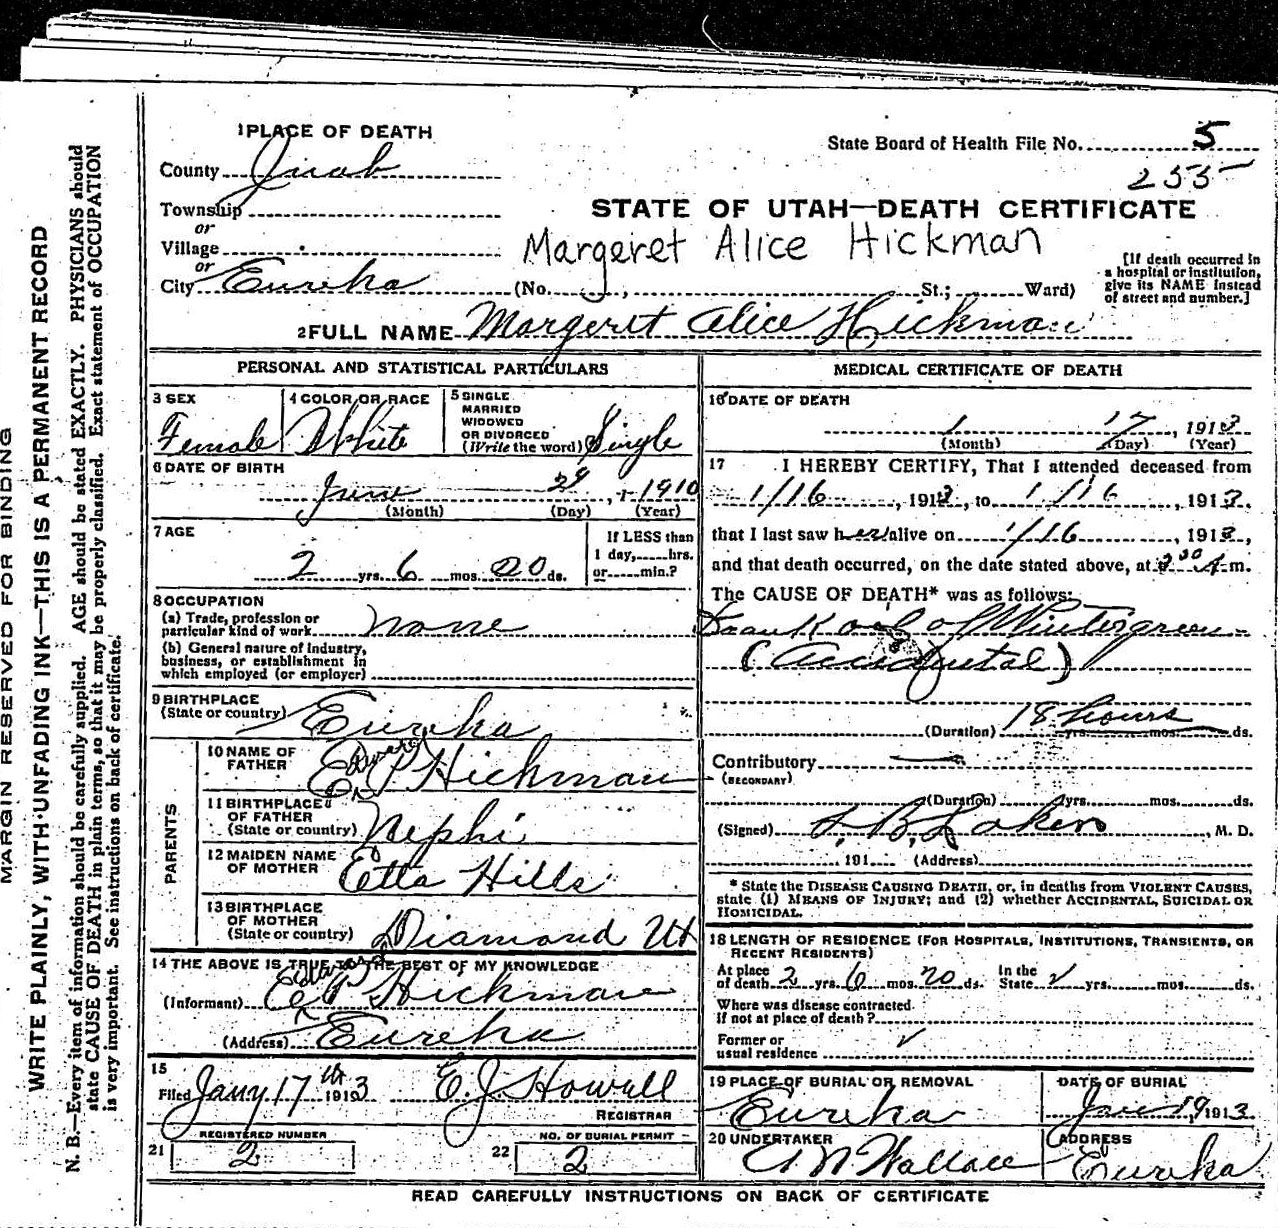 MARGIN RESERVED FOR BINDING
WRITE PLAINLY, WITH UNFADING INK—THIS IS A PERMANENT RECORD
N. B.—Every item of information should be carefully supplied. AGE should be stated EXACTLY. PHYSICIANS should
state CAUSE OF DEATH in plain terms, so that it may be properly classified. Exact statement of OCCUPATION
is very important. See instructions on back of certificate.
1 PLACE OF DEATH
County Juab
Township
or
Village
or
City Eureka
State Board of Health File No. 5
255
STATE OF UTAH—DEATH CERTIFICATE
Margeret Alice Hickman
(No. , St.; Ward)
[If death occurred in
a hospital or institution,
give its NAME instead
of street and number.]
2 FULL NAME Margeret Alice Hickman
PERSONAL AND STATISTICAL PARTICULARS
3 SEX
Female
4 COLOR OR RACE
White
5 SINGLE
MARRIED
WIDOWED
OR DIVORCED
(Write the word) Single
6 DATE OF BIRTH
June 29, 1910
(Month) (Day) (Year)
7 AGE
2 yrs. 6 mos. 20 ds.
If LESS than
1 day, hrs.
or min.?
8 OCCUPATION
(a) Trade, profession or
particular kind of work none
(b) General nature of Industry,
business, or establishment in
which employed (or employer)
9 BIRTHPLACE
(State or country) Eureka
PARENTS
10 NAME OF
FATHER
Edward
E P Hickman
11 BIRTHPLACE
OF FATHER
(State or country) Nephi
12 MAIDEN NAME
OF MOTHER Etta Hills
13 BIRTHPLACE
OF MOTHER
(State or country) Diamond Ut
14 THE ABOVE IS TRUE TO THE BEST OF MY KNOWLEDGE
Edward
(Informant) E P Hickman
(Address) Eureka
15
Filed Jany 17th 1913 E. J. Howell
REGISTRAR
REGISTERED NUMBER
21 2
NO. OF BURIAL PERMIT
22 2
MEDICAL CERTIFICATE OF DEATH
16 DATE OF DEATH
1 17, 1913
(Month) (Day) (Year)
17 I HEREBY CERTIFY, That I attended deceased from
1/16, 1913, to 1/16, 1913.
that I last saw her alive on 1/16, 1913,
and that death occurred, on the date stated above, at 3 30 A m.
The CAUSE OF DEATH* was as follows:
Drank oil of Wintergreen
(Accidental)
(Duration) 18 hours yrs. mos. ds.
Contributory
(SECONDARY)
(Duration) yrs. mos. ds.
(Signed) , M. D.
, 191 (Address)
* State the DISEASE CAUSING DEATH, or, in deaths from VIOLENT CAUSES,
state (1) MEANS OF INJURY; and (2) whether ACCIDENTAL, SUICIDAL OR
HOMICIDAL.
18 LENGTH OF RESIDENCE (FOR HOSPITALS, INSTITUTIONS, TRANSIENTS, OR
RECENT RESIDENTS)
At place
of death 2 yrs. 6 mos. 20 ds.
In the
State yrs. mos. ds.
Where was disease contracted
if not at place of death?
Former or
usual residence
19 PLACE OF BURIAL OR REMOVAL
Eureka
DATE OF BURIAL
Jan 19 1913
20 UNDERTAKER
A N Wallace
ADDRESS
Eureka
READ CAREFULLY INSTRUCTIONS ON BACK OF CERTIFICATE